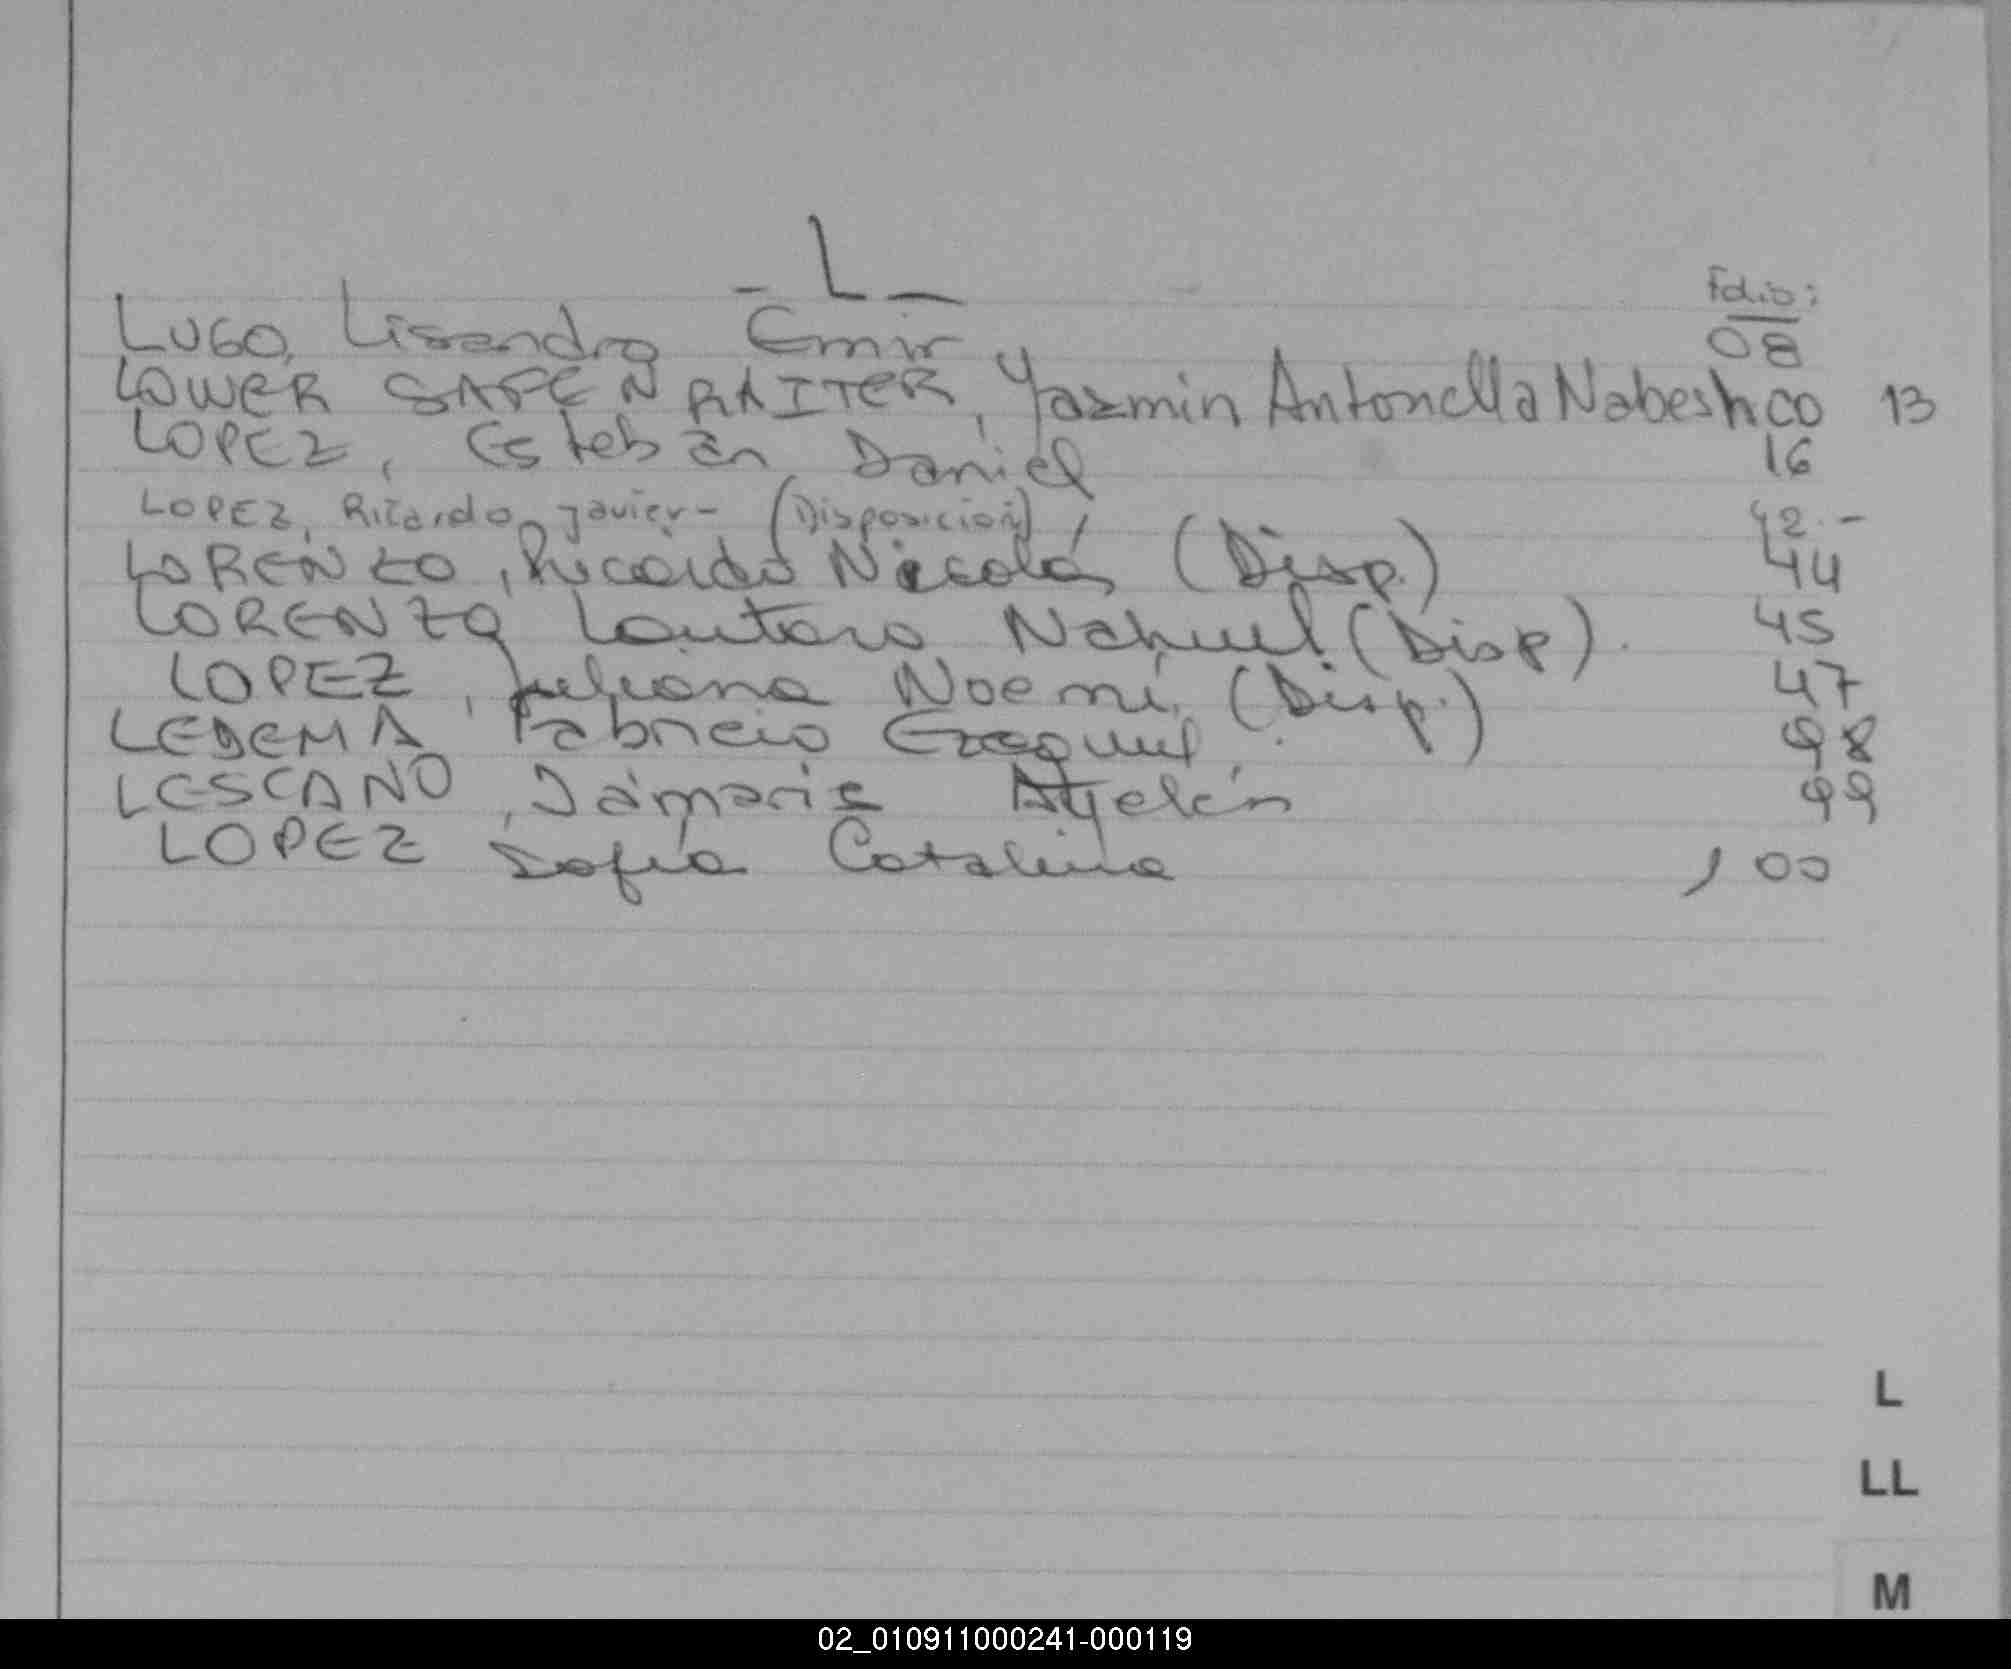 - L -
Folio:
LUGO, Lisandro Emir 08
LOWER SAFENRAITER, Yazmin Antonella Nabeshco 13
LOPEZ, Esteban Daniel 16
LOPEZ, Ricardo Javier - (Disposición) 42.-
LORENZO, Ricardo Nicolás (Disp.) 44
LORENZO Lautaro Nahuel (Disp). 45
LOPEZ, Juliana Noemí (Disp.) 47
LEDEMA Fabricio Ezequiel 98
LESCANO, Dámaris Ayelén 99
LOPEZ Sofía Catalina 100
L
LL
M
02_010911000241-000119